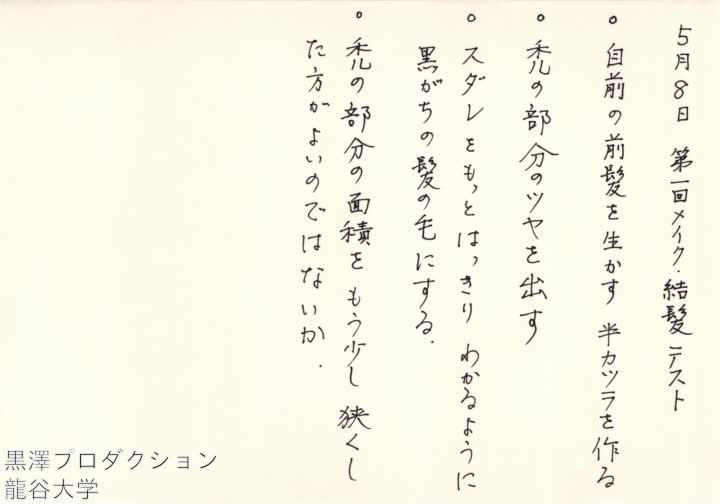 5月8日 第一回メイク・結髪テスト
。自前の前髪を生かす 半カツラを作る
。禿の部分のツヤを出す
。スダレをもっとはっきり わかるように
黒がちの髪の毛にする.
。禿の部分の面積を もう少し 狭くし
た方がよいのではないか.
黒澤プロダクション
龍谷大学